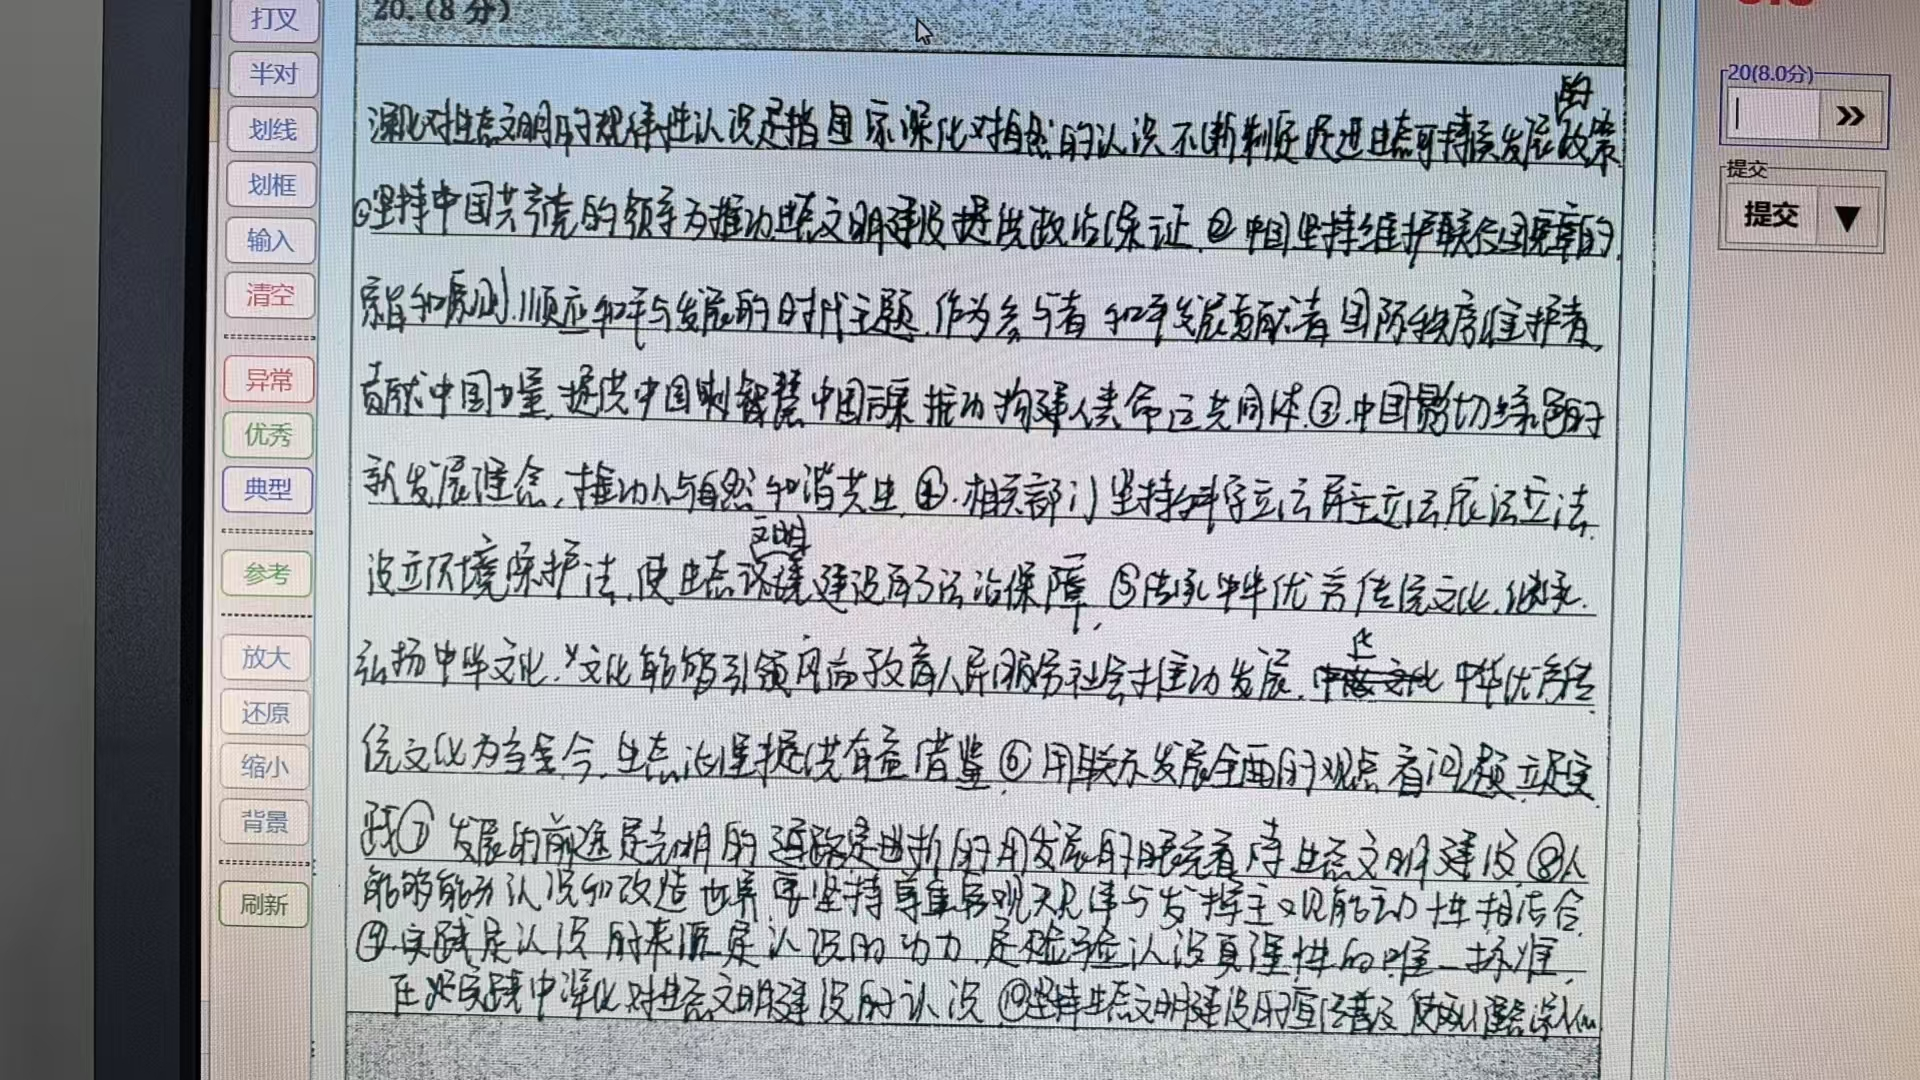 打叉
半对
划线
划框
输入
清空
异常
优秀
典型
参考
放大
还原
缩小
背景
刷新
20.(8分)
20(8.0分)
»
提交
提交
的
深化对生态文明的规律性认识是指国家深化对自然的认识不断制定促进生态可持续发展政策
①坚持中国共产党的领导为推动生态文明建设提供政治保证.②中国坚持维护联合国宪章的
宗旨和原则.顺应和平与发展的时代主题.作为参与者 和平发展贡献者 国际秩序维护者,
贡献中国力量.提供中国智慧中国方案 推动构建人类命运共同体.③.中国 绿色的
新发展理念,推动人与自然和谐共生.④.相关部门坚持科学立法民主立法依法立法.
文明
设立环境保护法,使生态建设有了法治保障.⑤传承中华优秀传统文化.继承.
弘扬中华文化.文化能够引领风尚教育人民服务社会推动发展. 中华优秀传
统文化为当今.生态治理提供有益借鉴.⑥用联系发展全面的观点看问题立足实
践⑦发展的前途是光明的道路是曲折的用发展的眼光看待生态文明建设.⑧人
能够能动认识和改造世界.要坚持尊重客观规律与发挥主观能动性相结合.
⑨.实践是认识的来源是认识的动力.是检验认识真理性的唯一标准.
在实践中深化对生态文明建设的认识.⑩坚持生态文明建设的宣传普及